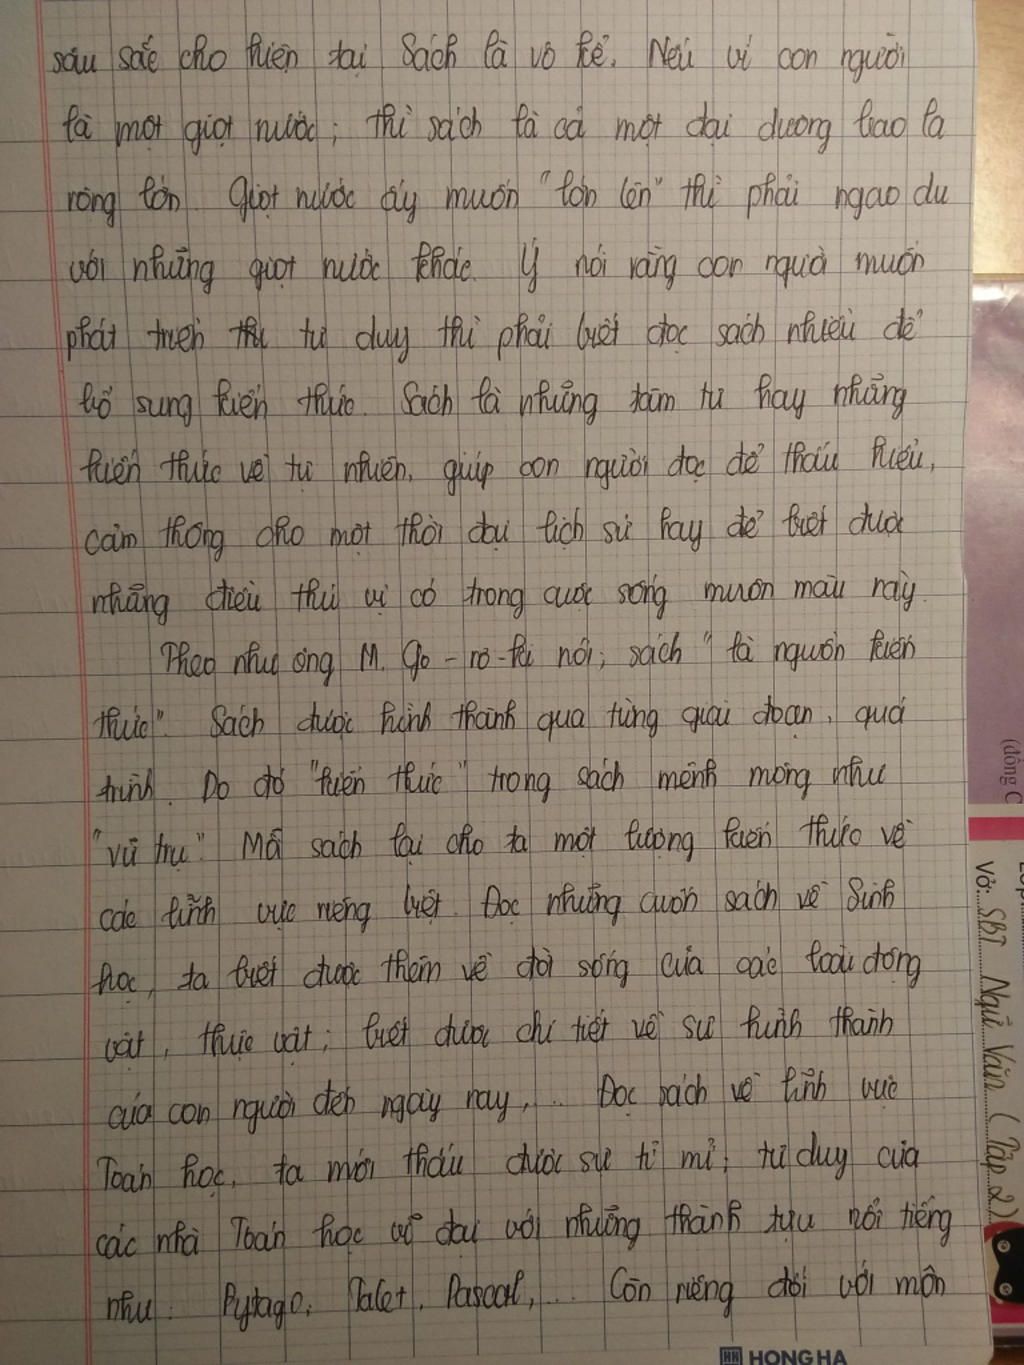 sâu sắc cho hiện tại Sách là vô kể. Nếu ví con người
là một giọt nước; thì sách là cả một đại dương bao la
rộng lớn. Giọt nước ấy muốn "lớn lên" thì phải ngao du
với những giọt nước khác. Ý nói rằng con người muốn
phát triển thì tư duy thì phải biết đọc sách nhiều để
bổ sung kiến thức. Sách là những tâm tư hay những
kiến thức về tự nhiên, giúp con người đọc để thấu hiểu,
cảm thông cho một thời đại lịch sử hay để biết được
những điều thú vị có trong cuộc sống muôn màu này.
Theo như ông M. Go-rơ-ki nói; sách "là nguồn kiến
thức". Sách được hình thành qua từng giai đoạn, quá
trình. Do đó "kiến thức" trong sách mênh mông như
"vũ trụ". Mỗi sách lại cho ta một lượng kiến thức về
các lĩnh vực riêng biệt. Đọc những cuốn sách về Sinh
học, ta biết được thêm về đời sống của các loài động
vật, thực vật; biết được chi tiết về sự hình thành
của con người đến ngày nay,... Đọc sách về lĩnh vực
Toán học, ta mới thấu được sự tỉ mỉ; tư duy của
các nhà Toán học vĩ đại với những thành tựu nổi tiếng
như: Pytago, Talet, Pascal,... Còn riêng đối với môn
HH HONG HA
(đồng C
Vở: SBT Ngữ Văn (Tập 2)